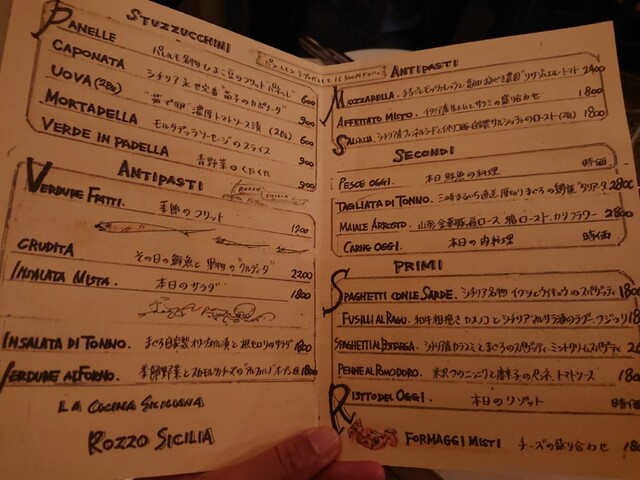 STUZZUCCHINI
PANELLE パレルモ名物 ひよこ豆のフリット 600
CAPONATA シチリア 600
UOVA (2Pz) "茹で卵" 濃厚トマトソース漬 900
MORTADELLA モルタデッラソーセージのスライス 900
VERDE IN PADELLA 青野菜のくたくた 900
ANTIPASTI
VERDURE FRITTI. 季節のフリット 1200
CRUDITA その日の鮮魚と果物の"クルディタ" 2200
INSALATA MISTA. 本日のサラダ 1800
INSALATA DI TONNO. まぐろ自家製オリーブオイル漬と根セロリのサラダ 1800
VERDURE AL FORNO. 季節野菜とスカモルツァチーズの オーブン焼 1800
LA CUCINA SICILIANA
ROZZO SICILIA
ANTIPASTI
MOZZARELLA. トマト 2400
AFFETTATO MISTO. イタリア産生ハムとサラミの盛り合わせ 1800
SALSICCIA. サルシッチャのロースト (2Pz) 1800
SECONDI
PESCE OGGI. 本日鮮魚の料理 時価
TAGLIATA DI TONNO. 三崎まるいち直送 厚切りまぐろの "タリアータ" 2800
MAIALE ARROSTO. 山形 金華豚肩ロース ロースト. カリフラワー 2800
CARNE OGGI. 本日の肉料理 時価
PRIMI
SPAGHETTI CON LE SARDE. シチリア名物 イワシとウイキョウのスパゲッティ 180
FUSILLI AL RAGU. 和牛粗挽き とシチリア マルサラ酒のラグー フジッリ 18
SPAGHETTI AL BOTTARGA. シチリア産カラスミとまぐろのスパゲッティ.
PENNE AL POMODORO. ニンニクと唐辛子のペンネ, トマトソース 180
RISOTTO DEL OGGI. 本日のリゾット 時価
FORMAGGI MISTI チーズの盛り合わせ 180